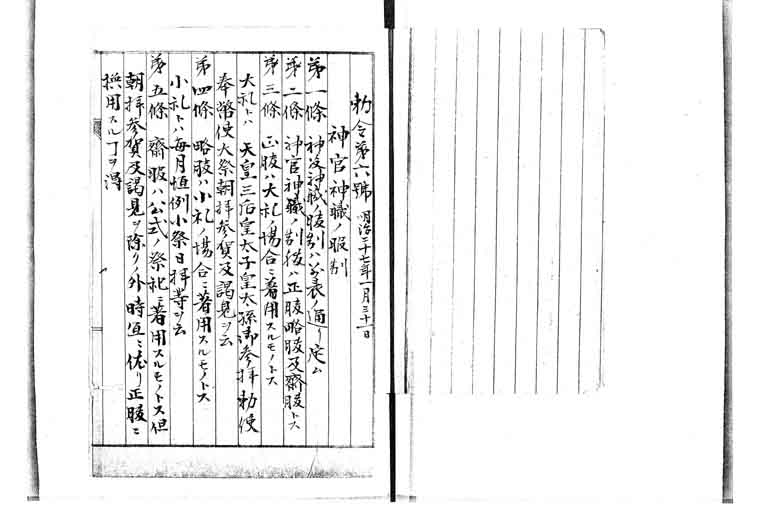 勅令第六號 明治二十七年一月三十一日
神官神職ノ服制
第一條 神官神職ノ服制ハ別表ノ通リ定ム
第二條 神官神職ノ制服ハ正服略服及齋服トス
第三條 正服ハ大礼ノ場合ニ著用スルモノトス
大礼トハ 天皇三后皇太子皇太孫御参拜勅使
奉幣使大祭朝拜参賀及謁見ヲ云
第四條 略服ハ小礼ノ場合ニ著用スルモノトス
小礼トハ毎月恒例小祭日拜等ヲ云
第五條 齋服ハ公式ノ祭祀ニ著用スルモノトス但
朝拜参賀及謁見ヲ除クノ外時宜ニ依リ正服ニ
換用スルヿヲ得